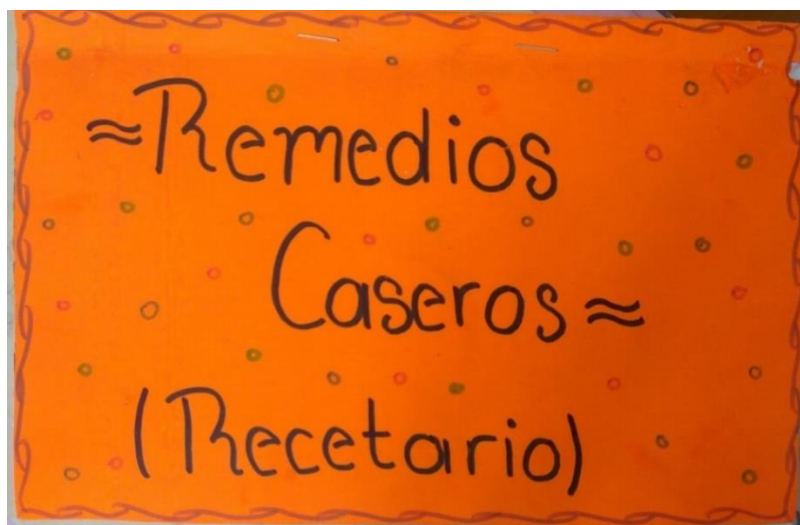 ≈Remedios
Caseros≈
(Recetario)